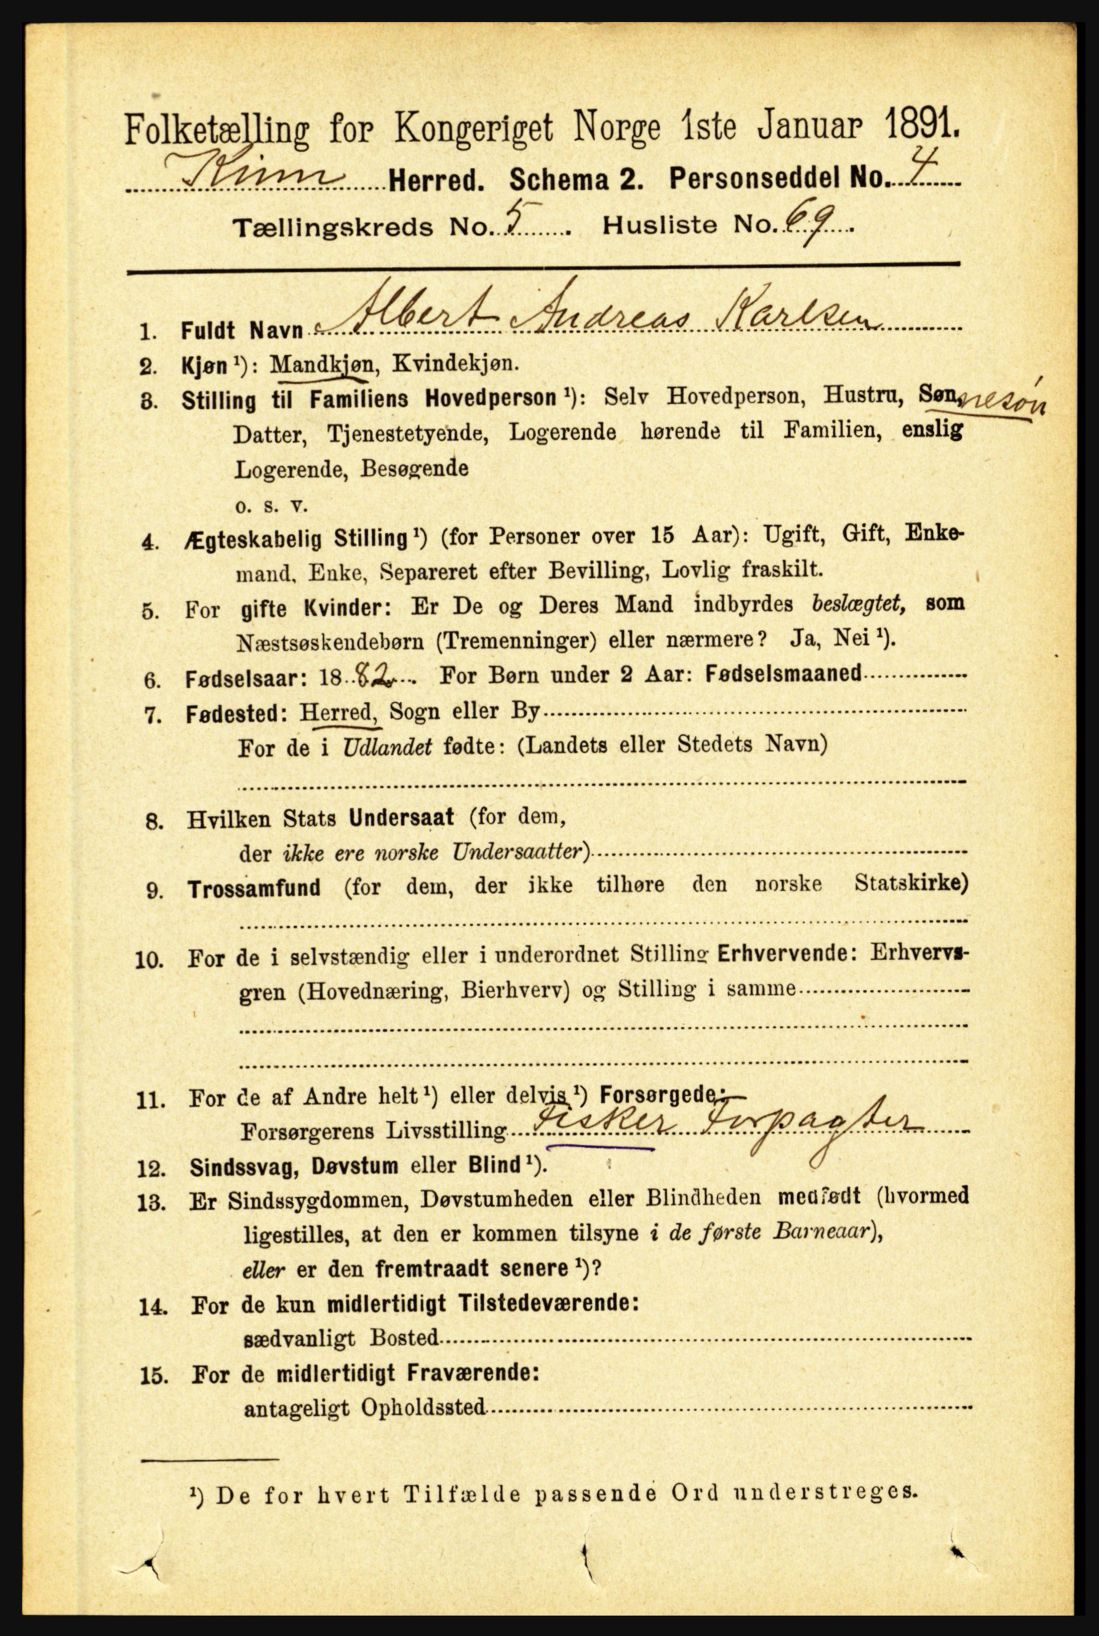 Folketælling for Kongeriget Norge 1ste Januar 1891.
Kinn Herred. Schema 2. Personseddel No. 4
Tællingskreds No. 5. Husliste No. 69.
1. Fuldt Navn Albert Andreas Karlsen
2. Kjøn ¹): Mandkjøn, Kvindekjøn.
3. Stilling til Familiens Hovedperson ¹): Selv Hovedperson, Hustru, Søn, nesøn
Datter, Tjenestetyende, Logerende hørende til Familien, enslig
Logerende, Besøgende
o. s. v.
4. Ægteskabelig Stilling ¹) (for Personer over 15 Aar): Ugift, Gift, Enke-
mand, Enke, Separeret efter Bevilling, Lovlig fraskilt.
5. For gifte Kvinder: Er De og Deres Mand indbyrdes beslægtet, som
Næstsøskendebørn (Tremenninger) eller nærmere? Ja, Nei ¹).
6. Fødselsaar: 18 82. For Børn under 2 Aar: Fødselsmaaned
7. Fødested: Herred, Sogn eller By
For de i Udlandet fødte: (Landets eller Stedets Navn)
8. Hvilken Stats Undersaat (for dem,
der ikke ere norske Undersaatter)
9. Trossamfund (for dem, der ikke tilhøre den norske Statskirke)
10. For de i selvstændig eller i underordnet Stilling Erhvervende: Erhvervs-
gren (Hovednæring, Bierhverv) og Stilling i samme
11. For de af Andre helt ¹) eller delvis ¹) Forsørgede:
Forsørgerens Livsstilling Fisker Forpagter
12. Sindssvag, Døvstum eller Blind ¹).
13. Er Sindssygdommen, Døvstumheden eller Blindheden medfødt (hvormed
ligestilles, at den er kommen tilsyne i de første Barneaar),
eller er den fremtraadt senere ¹)?
14. For de kun midlertidigt Tilstedeværende:
sædvanligt Bosted
15. For de midlertidigt Fraværende:
antageligt Opholdssted
¹) De for hvert Tilfælde passende Ord understreges.